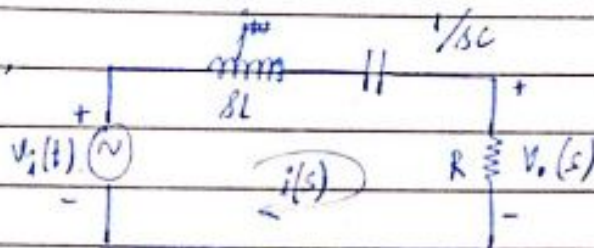 1/sC
sL
+
+
Vi(t)
i(s)
R
Vo(s)
-
-